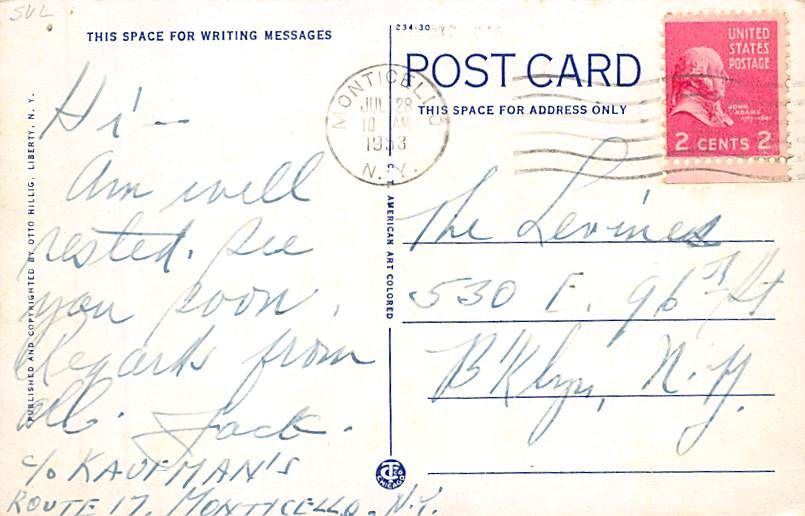 SUL
THIS SPACE FOR WRITING MESSAGES
Hi! —
Am well
rested. See
you soon.
Regards from
all. Jack.
c/o KAUFMAN'S
ROUTE 17, MONTICELLO, N.Y.
PUBLISHED AND COPYRIGHTED BY OTTO HILLIG, LIBERTY, N. Y.
234-30
POST CARD
THIS SPACE FOR ADDRESS ONLY
MONTICELLO
JUL 28
10 AM
1953
N. Y.
UNITED
STATES
POSTAGE
JOHN
ADAMS
2 CENTS 2
C. T. AMERICAN ART COLORED
The Levines
530 E. 96 St
B'Klyn, N.Y.
CHICAGO